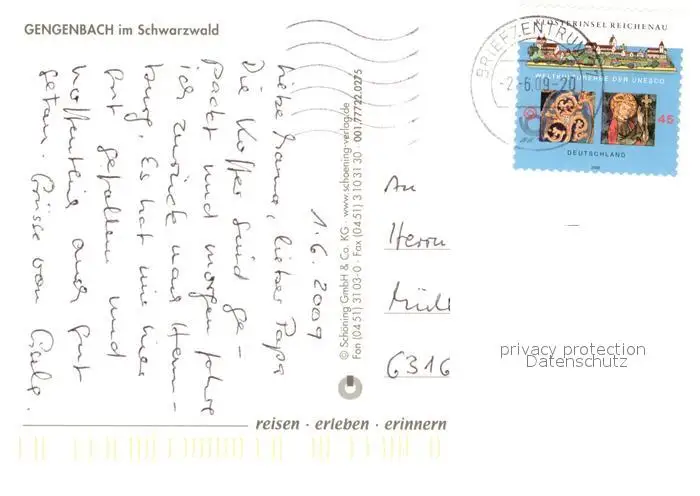 GENGENBACH im Schwarzwald
1. 6. 2009
Liebe Mama, lieber Papa
Die Koffer sind ge-
packt und morgen fahre
ich zurück nach Hem-
burg. Es hat mir hier
gut gefallen und
hoffentlich auch gut
getan. Grüsse von Gisela.
© Schöning GmbH & Co. KG · www.schoening-verlag.de
Fon (04 51) 31 03-0 · Fax (04 51) 3 10 31 30 · 001.77722.0275
reisen · erleben · erinnern
BRIEFZENTRUM
-2.-6.09-20
KLOSTERINSEL REICHENAU
WELTKULTURERBE DER UNESCO
45
DEUTSCHLAND
An
Herrn
6316
privacy protection
Datenschutz